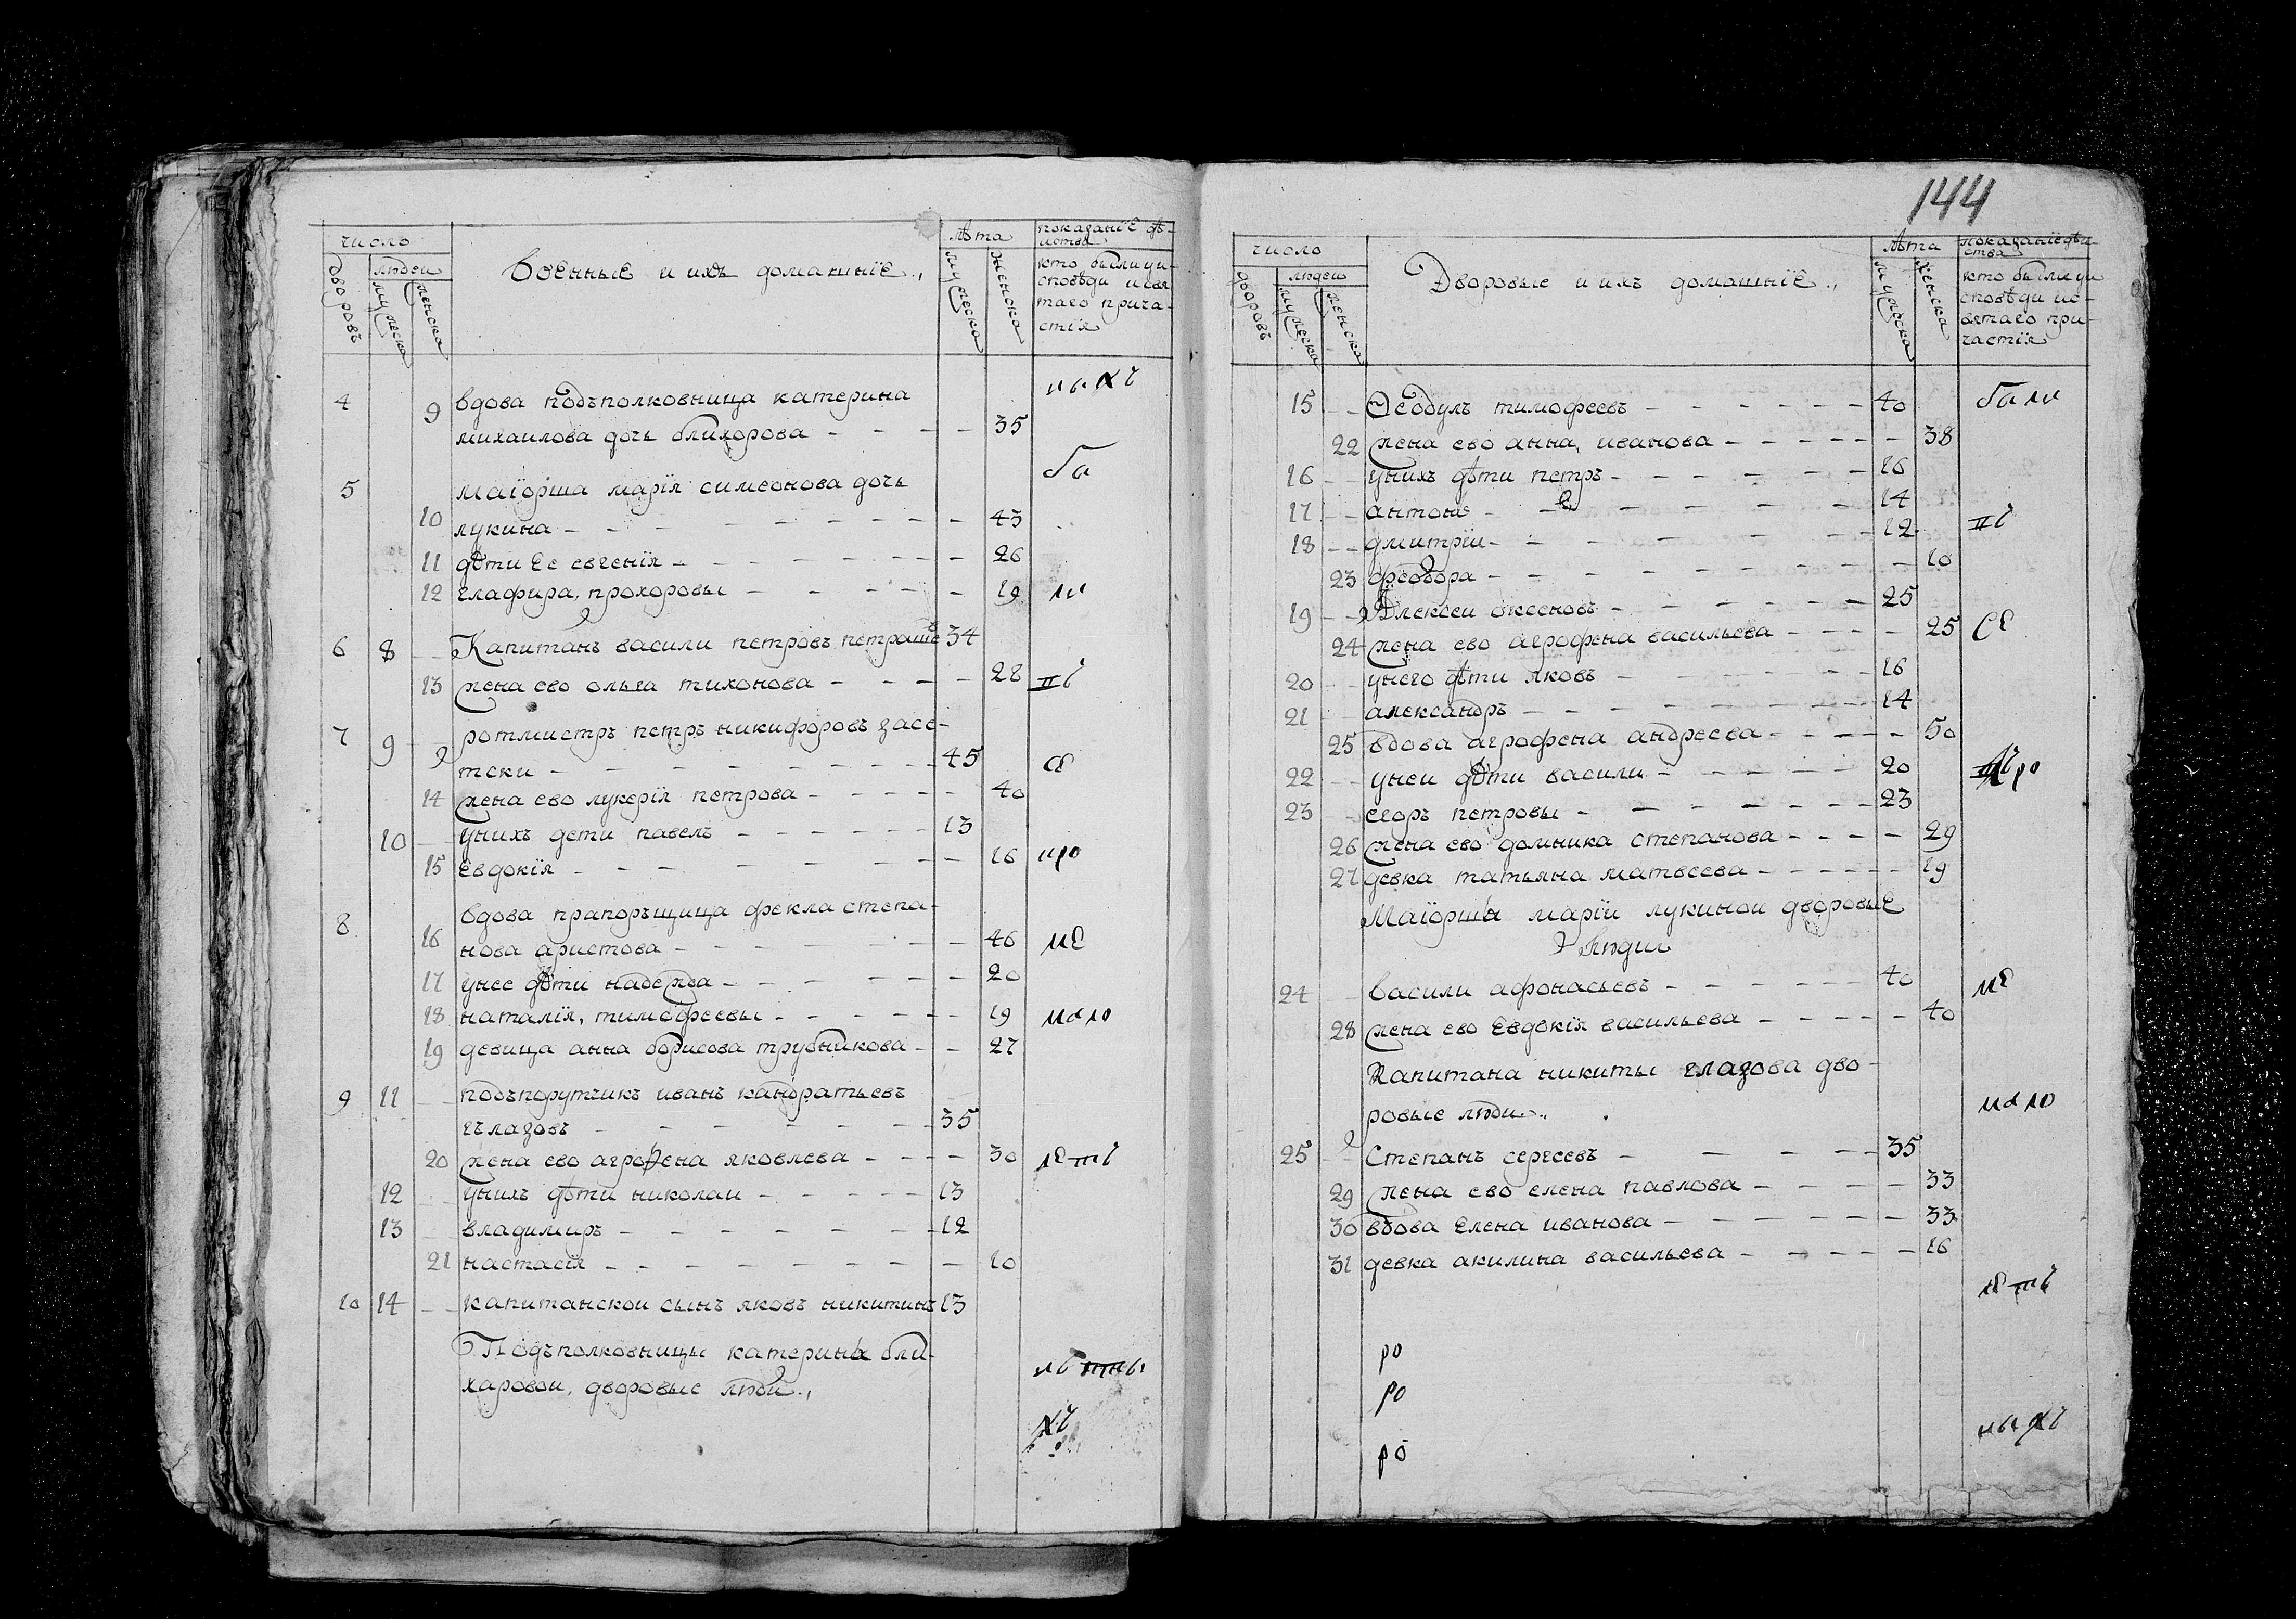 число
людеи
дворовъ
мужеска
женска
военные и ихъ домашнїе.,
лѣта
мужеска
женска
показанїе дѣ-
иства
кто были уи-
споведи и свя
таго прича-
стїя
4 9 вдова подъполковница катерина
михаилова дочь блихорова 35
5 маїорша марїя симеонова дочь
10 лукина 43
11 дѣти ее евгенїя 26
12 глафира, прохоровы 19
6 8 Капитанъ васили петровъ петраше 34
13 жена ево ольга тихонова 28
7 9 ротмистръ петръ никифоровъ засе-
тски 45
14 жена ево лукерїя петрова 40
10 унихъ дети павелъ 13
15 Евдокїя 16
8 вдова прапорьщица фекла степа-
16 нова аристова 46
17 унее дѣти надежда 20
18 наталїя, тимофеевы 19
19 девица анна борисова трубникова 27
9 11 подъпорутчикъ иванъ кандратьевъ
гълазовъ 35
20 жена ево агрофена яковлева 30
12 унихъ дѣти николаи 13
13 владимиръ 12
21 настасїя 10
10 14 капитанскои сынъ яковъ никитинъ 13
Подъполковницы катерины бли-
харовои, дворовые люди.,
144
число
людеи
дворовъ
мужеска
женска
Дворовые и ихъ домашнїе.,
лѣта
мужеска
женска
показанїе дѣи
ства
кто были уи
споведи ис-
вятаго при-
частїя
15 Ѳеодулъ тимофеевъ 40
22 жена ево анна, иванова 38
16 унихъ дѣти петръ 16
17 антонъ 14
18 дмитрїи 12
23 феодора 10
19 Алексеи оксеновъ 25
24 жена ево агрофена васильева 25
20 унего дѣти яковъ 16
21 александръ 14
25 вдова агрофена андреева 50
22 унеи дѣти васили 20
23 егоръ петровы 23
26 жена ево домника степанова 29
27 девка татьяна матвеева 19
Маїорши марїи лукинои дворовые
люди
24 васили афонасьевъ 40
28 жена ево Евдокїя васильева 40
Капитана никиты глазова дво-
ровые люди.,
25 Степанъ сергеевъ 35
29 жена ево елена павлова 33
30 вдова Елена иванова 33
31 девка акилина васильева 16
ро
ро
ро